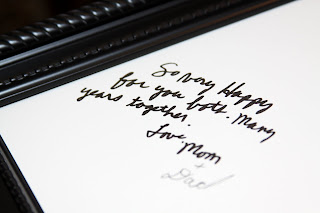 So Very Happy
for you both. Many
years together.
Love,
Mom
+
Dad